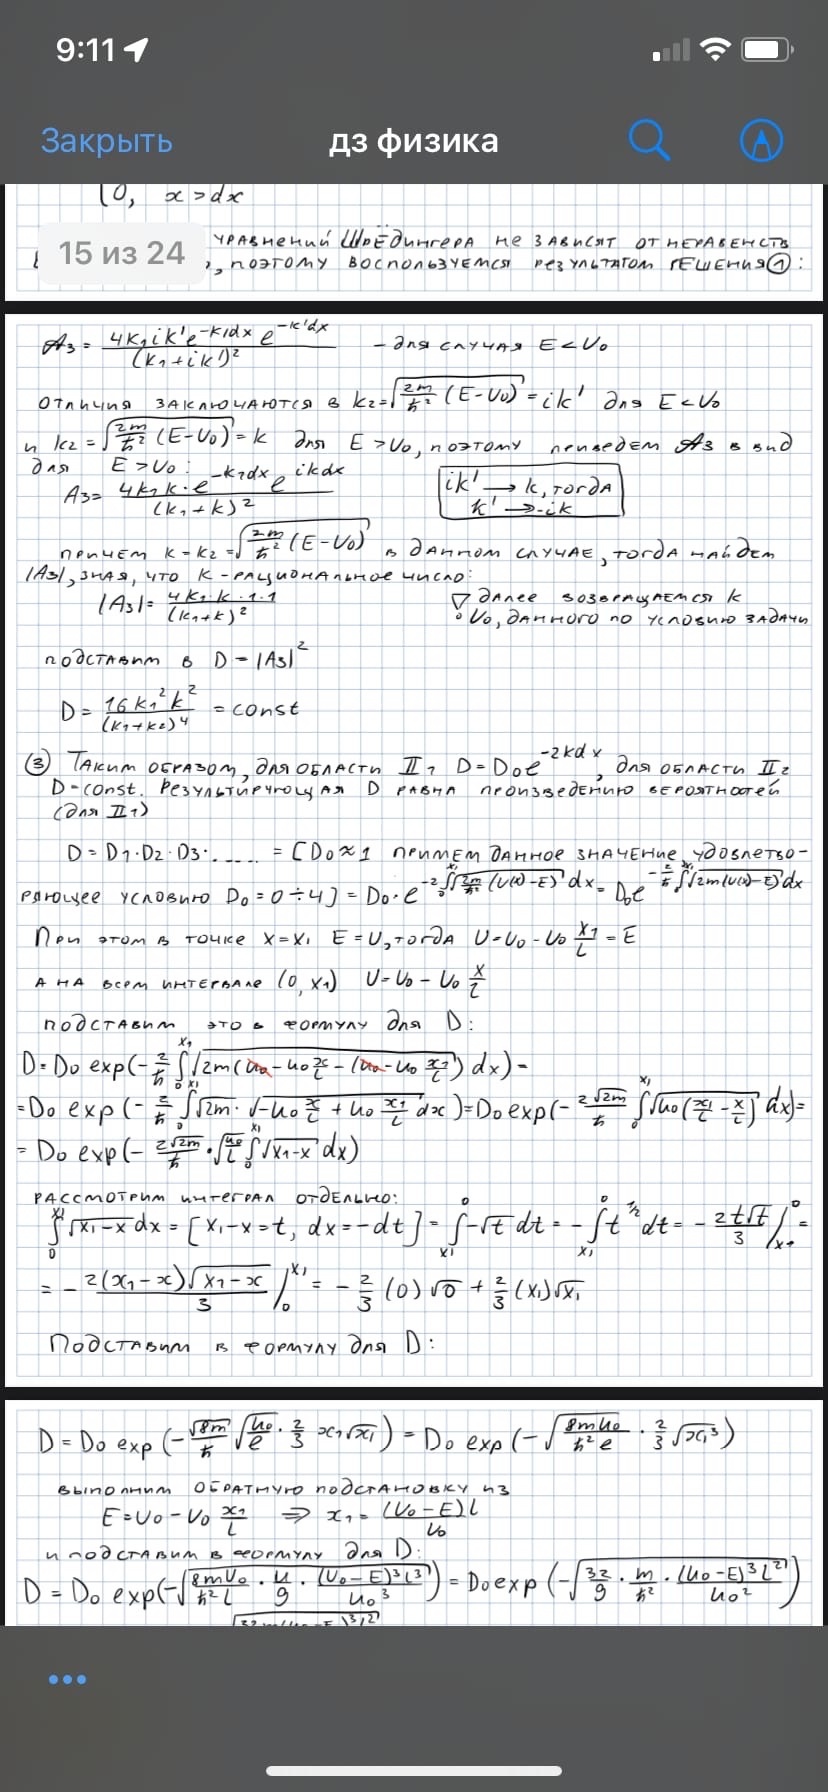 9:11
Закрыть
дз физика
0, x > dx
15 из 24
уравнений Шрёдингера не зависят от неравенств
, поэтому воспользуемся результатом решения ①:
A₃ = 4k₁ik'e^(-k₁dx) e^(-k'dx) / (k₁+ik')² – для случая E < U₀
отличия заключаются в k₂ = √(2m/ħ² (E-U₀)) = ik' для E < U₀
и k₂ = √(2m/ħ² (E-U₀)) = k для E > U₀, поэтому приведем A₃ в вид
для E > U₀:
A₃ = 4k₁k·e^(-k₁dx) e^(ikdx) / (k₁+k)²
ik' → k, тогда
k' → -ik
причем k = k₂ = √(2m/ħ² (E-U₀)) в данном случае, тогда найдем
|A₃|, зная, что k – рациональное число:
|A₃| = 4k₁·k·1·1 / (k₁+k)²
далее возвращаемся к
U₀, данного по условию задачи
подставим в D = |A₃|²
D = 16k₁²k² / (k₁+k₂)⁴ = const
③ Таким образом, для области II₁ D = D₀e^(-2kdx), для области II₂
D = const. Результирующая D равна произведению вероятностей
(для II₁)
D = D₁·D₂·D₃·..... = [D₀ ≈ 1 примем данное значение, удовлетво-
ряющее условию D₀ = 0÷4] = D₀·e^(-2∫₀^x₁ √(2m/ħ² (U(x)-E)) dx) = D₀e^(-2/ħ ∫₀^x₁ √(2m(U(x)-E)) dx)
При этом в точке x = x₁ E = U, тогда U = U₀ - U₀ x₁/L = E
а на всем интервале (0, x₁) U = U₀ - U₀ x/L
подставим это в формулу для D:
D = D₀ exp(-2/ħ ∫₀^x₁ √(2m(u₀ - u₀ x/L - (u₀ - u₀ x₁/L))) dx) =
= D₀ exp(-2/ħ ∫₀^x₁ √2m · √(-u₀ x/L + u₀ x₁/L) dx) = D₀ exp(-2√2m/ħ ∫₀^x₁ √(u₀(x₁/L - x/L)) dx) =
= D₀ exp(-2√2m/ħ · √(u₀/L) ∫₀^x₁ √(x₁-x) dx)
рассмотрим интеграл отдельно:
∫₀^x₁ √(x₁-x) dx = [x₁-x = t, dx = -dt] = ∫_x₁^0 -√t dt = -∫_x₁^0 t^½ dt = - 2t√t/3 |_x₁^0 =
= - 2(x₁-x)√(x₁-x) / 3 |₀^x₁ = - 2/3 (0)√0 + 2/3 (x₁)√x₁
Подставим в формулу для D:
D = D₀ exp(-√8m/ħ √(u₀/l) · 2/3 x₁√x₁) = D₀ exp(-√(8mu₀/ħ²l) · 2/3 √x₁³)
выполним обратную подстановку из
E = U₀ - U₀ x₁/L ⇒ x₁ = (U₀-E)L / U₀
и подставим в формулу для D:
D = D₀ exp(-√(8mU₀/ħ²L · 4/9 · (U₀-E)³L³/u₀³)) = D₀ exp(-√(32/9 · m/ħ² · (u₀-E)³L²/u₀²))